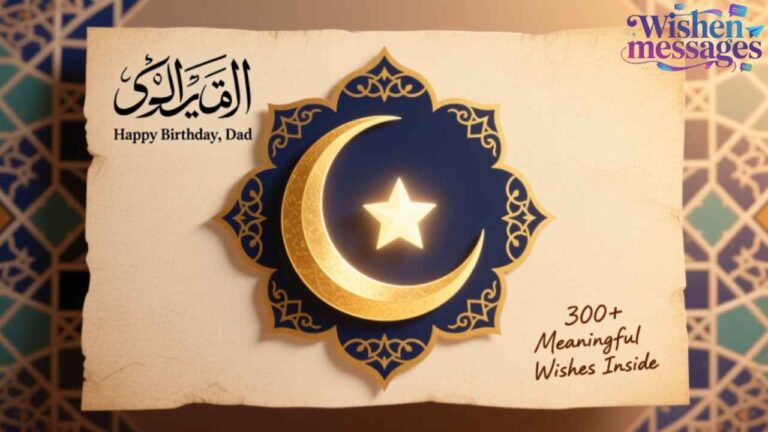 Wishen
messages
Happy Birthday, Dad
300+
Meaningful
Wishes Inside